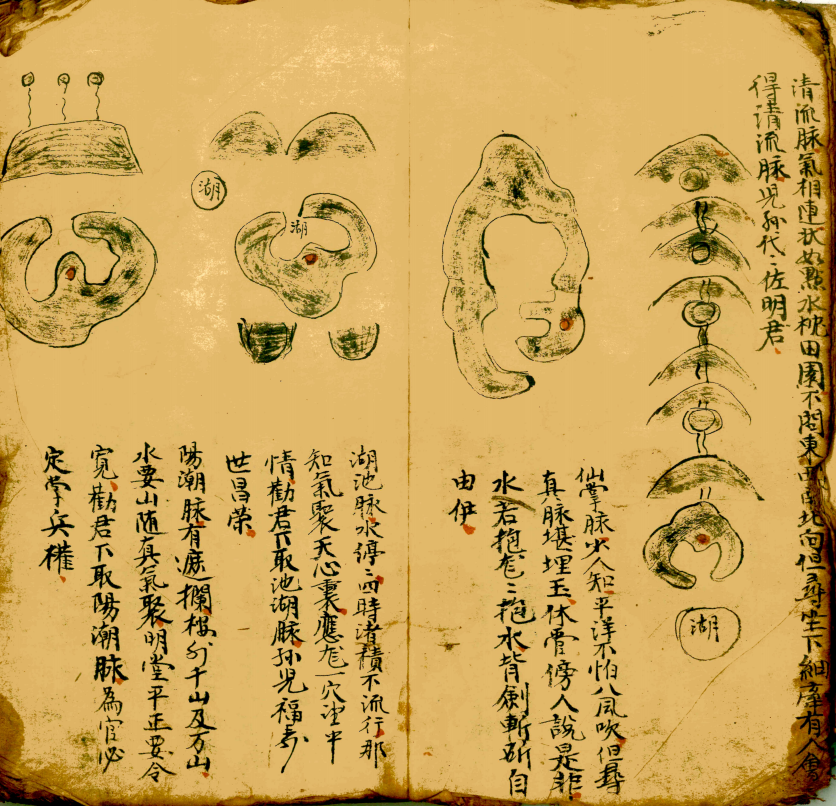 清流脉氣相連狀如點水枕田園不問東西南北向但尋坐下細
有人會
得清流脉児孫代〻佐明君
湖
仙掌脉少人知平洋不怕八風吹但尋
真脉堪埋玉休管傍人說是非
水若抱〻抱水背劍斬斫自
由伊
湖
湖
湖池脉水停〻四時渚積不流行那
知氣聚天心裏應一穴半
情勸君下取池湖脉孫児福壽
世昌荣
陽潮脉有遮攔樓外千山及万山
水要山随真氣聚明堂平正要令
寬勸君下取陽潮脉為官必
定掌兵權